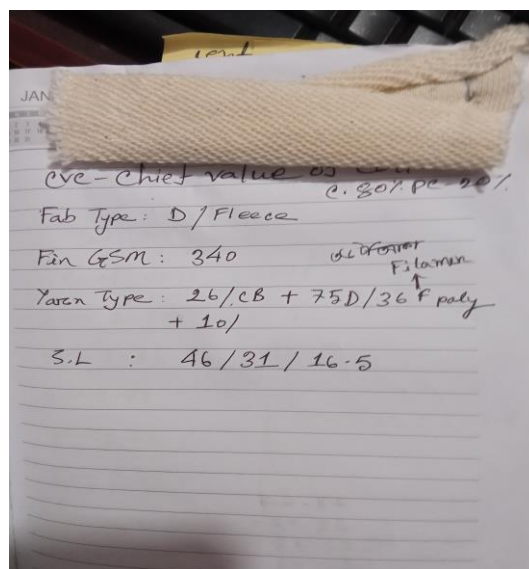 JAN
cvc - Chief value of
C. 80% PC - 20%
Fab Type : D/Fleece
Fin GSM : 340
Filamen
Yarn Type : 26/CB + 75D/36 F poly
+ 10/
S.L : 46/31/16.5